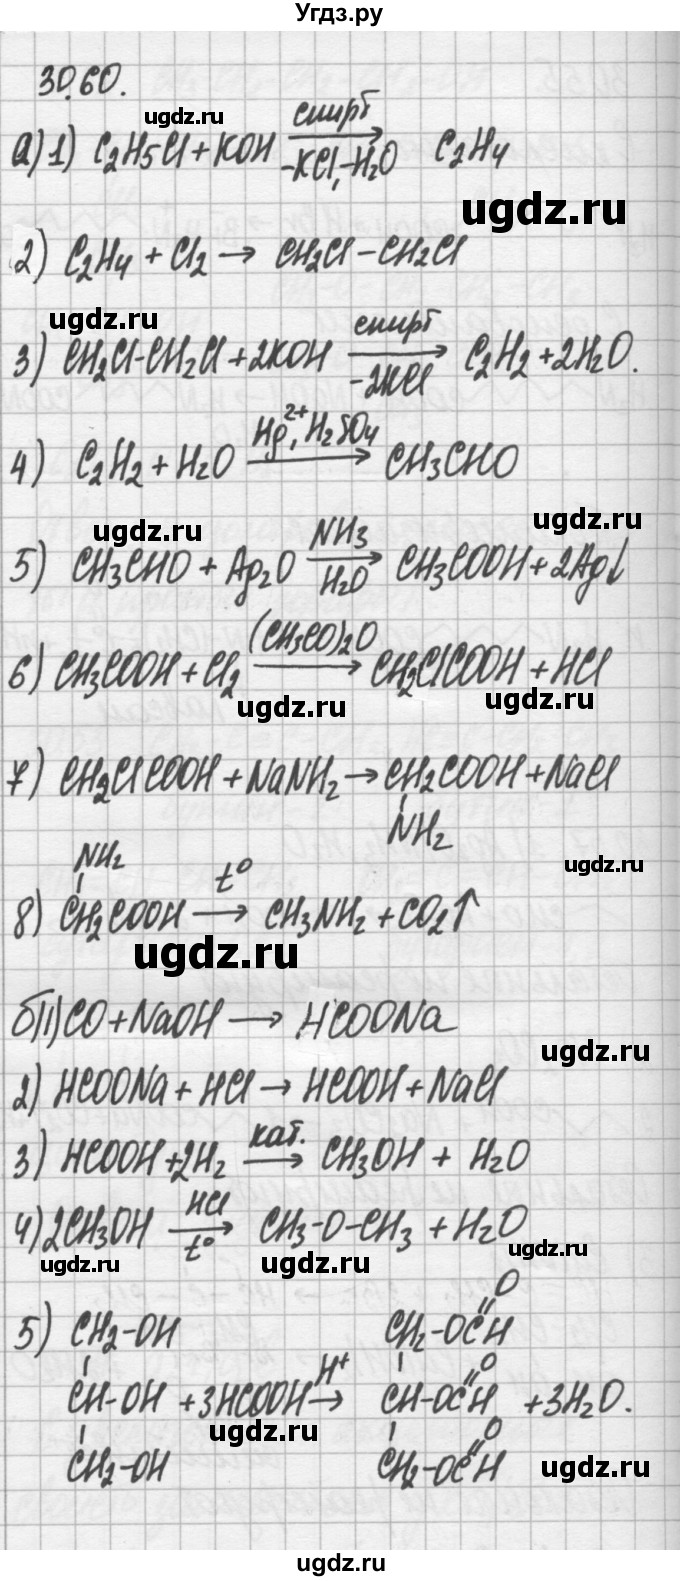 Угдз.ру
30.60.
ugdz.ru
а) 1) C2H5Cl + KOH спирт → -KCl, -H2O C2H4
ugdz.ru
2) C2H4 + Cl2 → CH2Cl – CH2Cl
ugdz.ru
3) CH2Cl-CH2Cl + 2KOH спирт → -2KCl C2H2 + 2H2O.
4) C2H2 + H2O Hg2+, H2SO4 → CH3CHO
ugdz.ru
ugdz.ru
5) CH3CHO + Ag2O NH3 → H2O CH3COOH + 2Ag↓
6) CH3COOH + Cl2 (CH3CO)2O → CH2ClCOOH + HCl
ugdz.ru
ugdz.ru
7) CH2ClCOOH + NaNH2 → CH2COOH + NaCl
NH2
ugdz.ru
NH2
8) CH2COOH t° → CH3NH2 + CO2↑
ugdz.ru
б) 1) CO + NaOH → HCOONa
ugdz.ru
2) HCOONa + HCl → HCOOH + NaCl
3) HCOOH + 2H2 кат. → CH3OH + H2O
4) 2CH3OH HCl → t° CH3-O-CH3 + H2O
ugdz.ru
ugdz.ru
ugdz.ru
O
5) CH2-OH CH2-OCH
O
CH-OH + 3HCOOH H+ → CH-OCH + 3H2O.
ugdz.ru
O
CH2-OH CH2-OCH
ugdz.ru
ugdz.ru